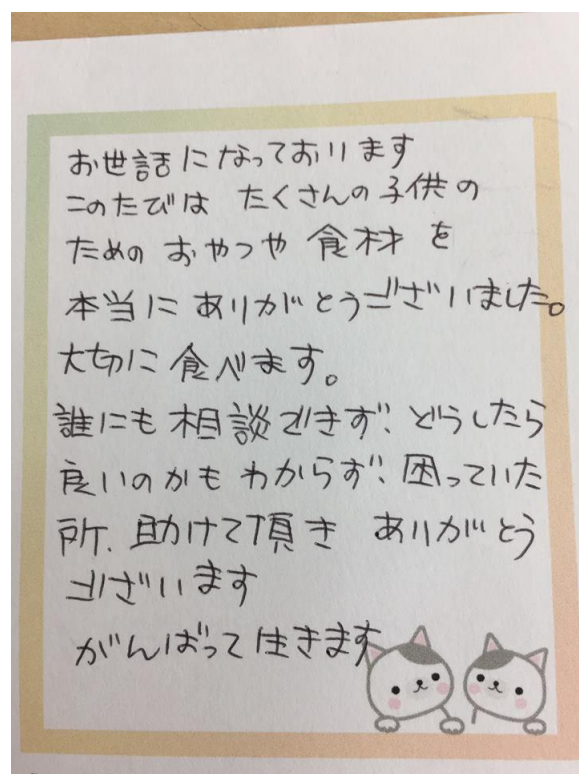 お世話になっております
このたびは たくさんの子供の
ための おやつや 食材 を
本当に ありがとうございました。
大切に 食べます。
誰にも 相談できず、どうしたら
良いのかも わからず、困っていた
所、助けて頂き ありがとう
ございます
がんばって 生きます